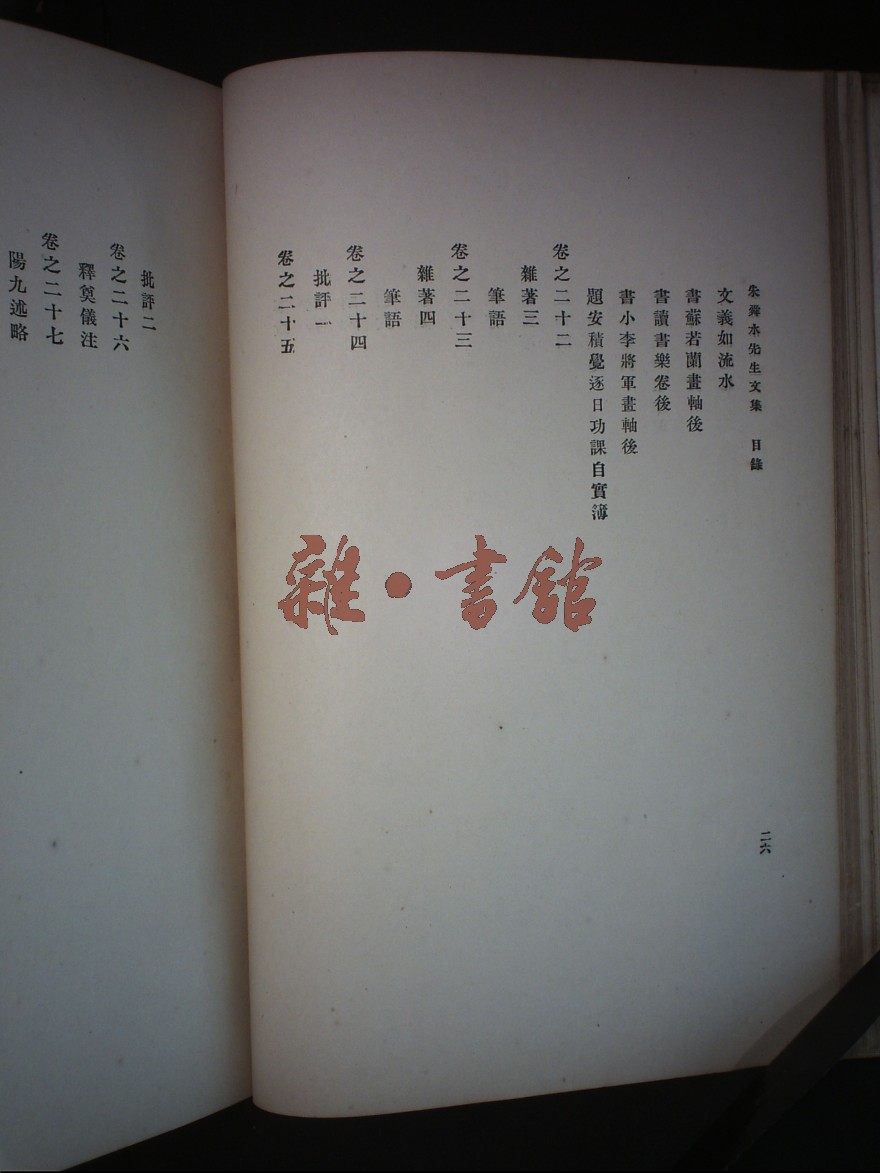 朱舜水先生文集　目錄
文義如流水
書蘇若蘭畫軸後
書讀書樂卷後
書小李將軍畫軸後
題安積覺逐日功課自實簿
卷之二十二
雜著三
卷之二十三
筆語
雜著四
筆語
卷之二十四
批評一
卷之二十五
二六
批評二
卷之二十六
釋奠儀注
卷之二十七
陽九述略
雜·書館